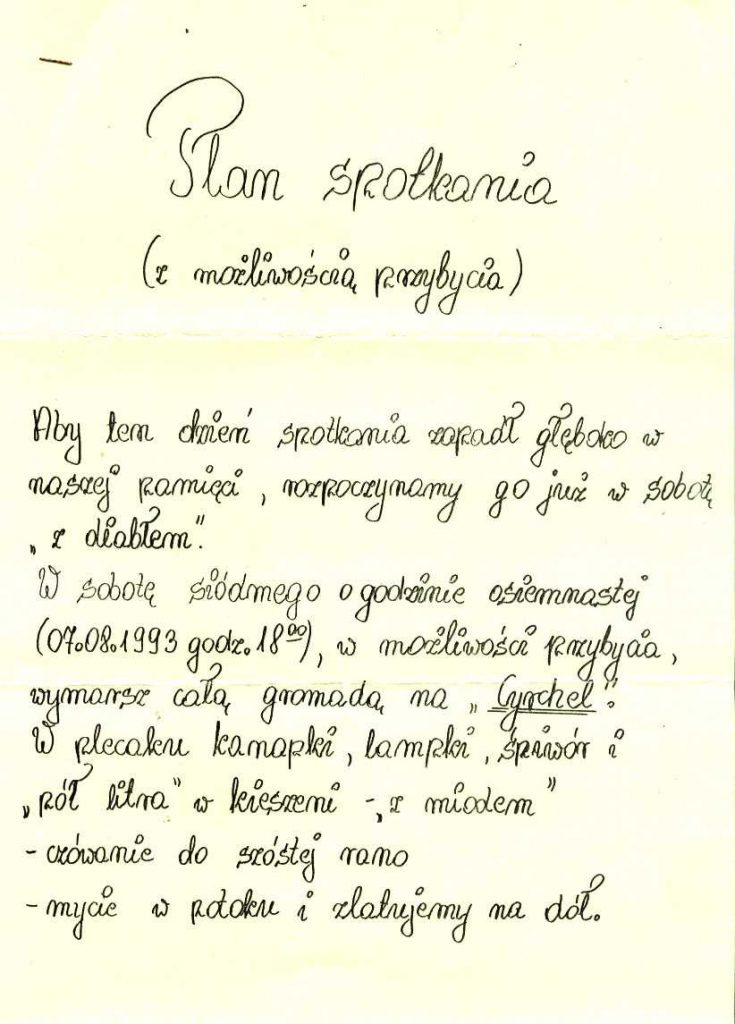 Plan spotkania
(z możliwością przybycia)
Aby ten dzień spotkania zapadł głęboko w
naszej pamięci, rozpoczynamy go już w sobotę
„z diabłem”.
W sobotę siódmego o godzinie osiemnastej
(07.08.1993 godz. 18⁰⁰), w możliwości przybycia,
wymarsz całą gromadą na „Cyrchel”.
W plecaku kanapki, lampki, śpiwór i
„pół litra” w kieszeni -„z miodem”
- czówanie do szóstej rano
- mycie w potoku i zlatujemy na dół.